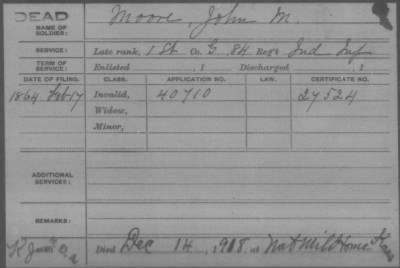 DEAD
NAME OF SOLDIER: Moore, John M.
SERVICE: Late rank, 1 St Co. G, 84 Reg't Ind Inf
TERM OF SERVICE: Enlisted , 1 Discharged , 1
DATE OF FILING. CLASS. APPLICATION NO. LAW. CERTIFICATE NO.
1864 Feb 17 Invalid, 40710 27524
Widow,
Minor,
ADDITIONAL SERVICES:
REMARKS:
Died Dec 14, 1918, at Nat Mil Home Kans